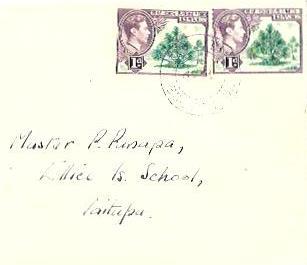 GILBERT & ELLICE ISLANDS
1D
GILBERT & ELLICE ISLANDS
1D
Master P. Rinapa,
Ellice Is. School,